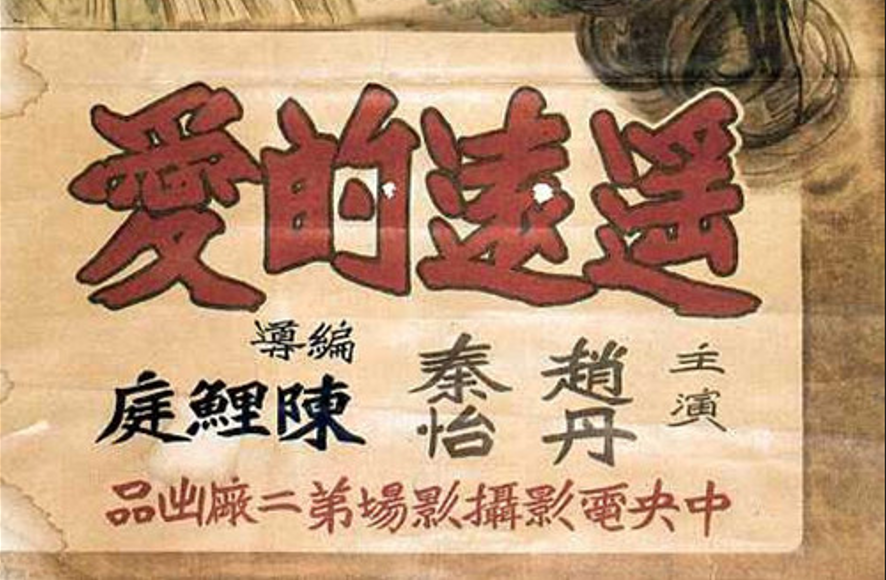 遙遠的愛
主演
趙丹
秦怡
編導
陳鯉庭
中央電影攝影場第二廠出品